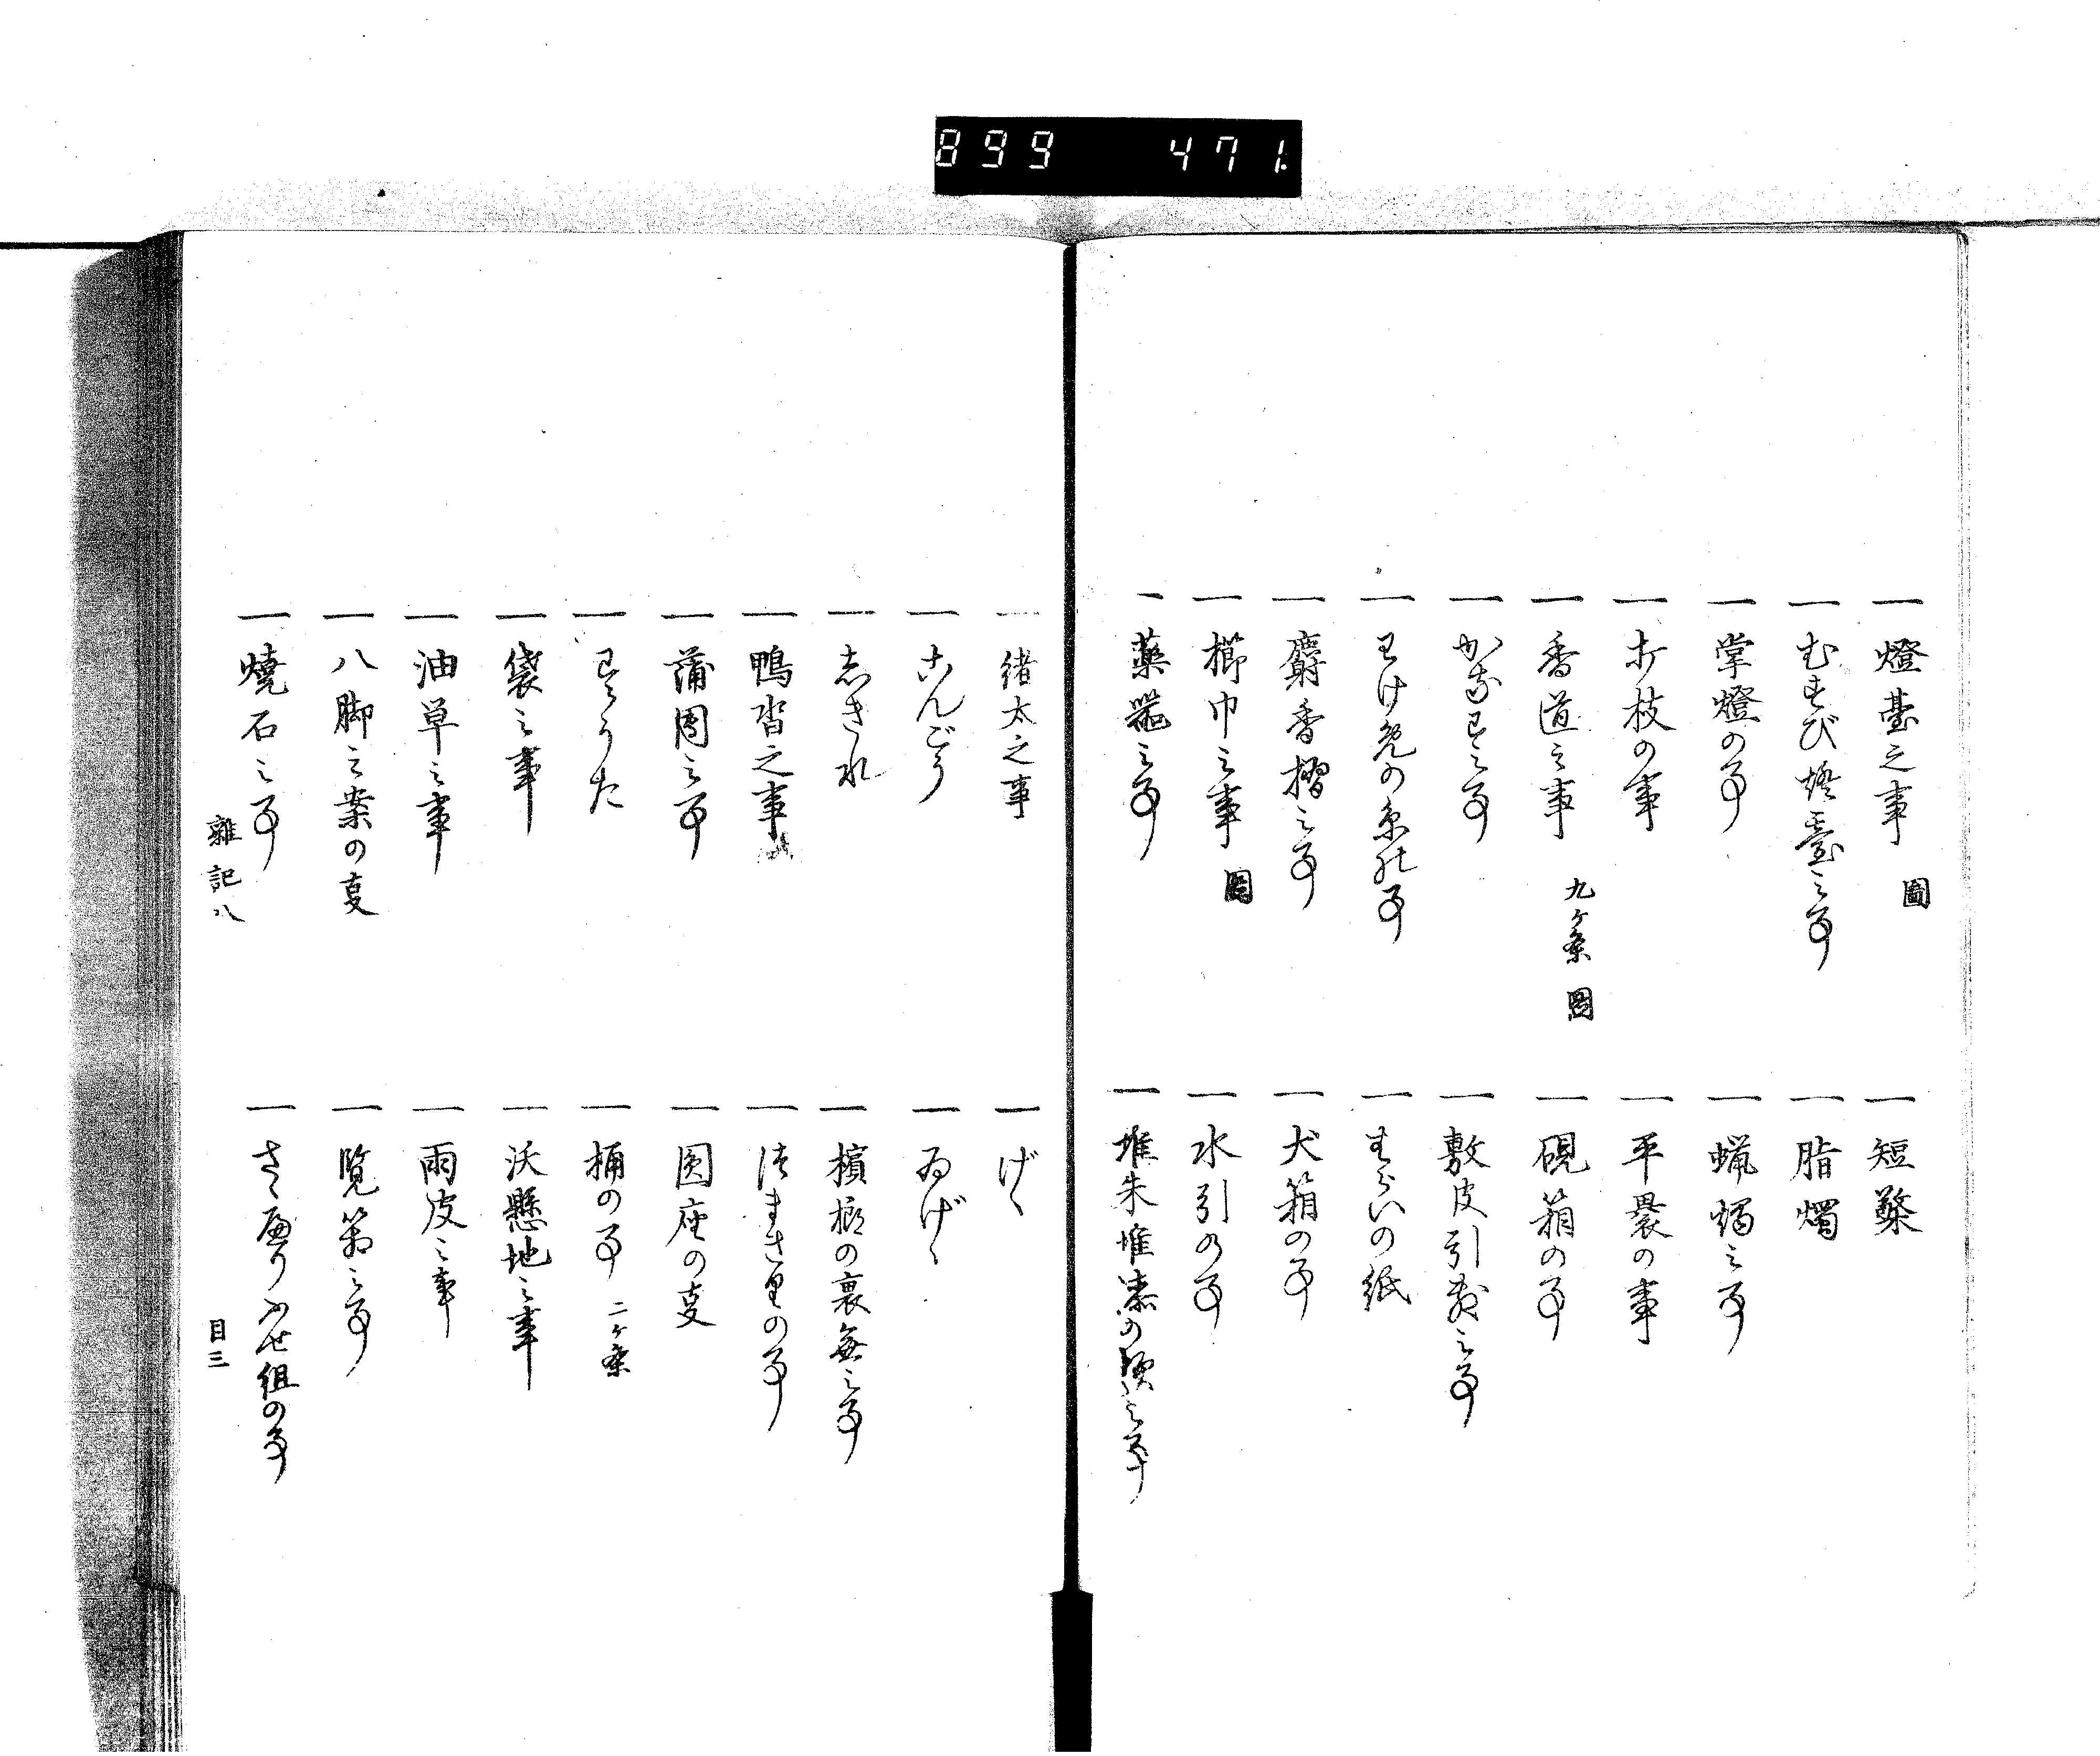 一 燈臺之事 圖
一 短檠
一 むすび燈臺之事
一 脂燭
一 掌燈の事
一 蝋燭之事
一 打枝の事
一 平裹の事
一 香道之事 九ヶ条 圖
一 硯箱の事
一 之事
一 敷皮引敷之事
一 わけ の糸の事
一 の紙
一 麝香摺之事
一 犬箱の事
一 櫛巾之事 圖
一 水引の事
一 藥器之事
一 堆朱堆漆の類之事
一 緒太之事
一 げゝ
一 こんごう
一 ゐげゝ
一 志きれ
一 檳榔の裏無之事
一 鴨沓之事
一 の事
一 蒲團之事
一 圓座の事
一 わらうた
一 桶の事 二ヶ条
一 袋之事
一 沃懸地之事
一 油草之事
一 雨皮之事
一 八脚之案の事
一 覧筥之事
一 燒石之事
一 ふせ組の事
雜記八 目三